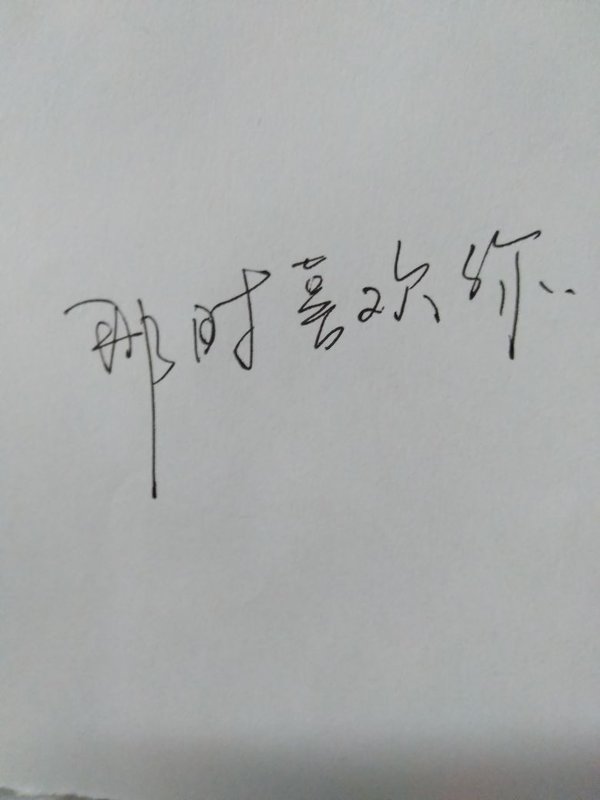 那时喜欢你